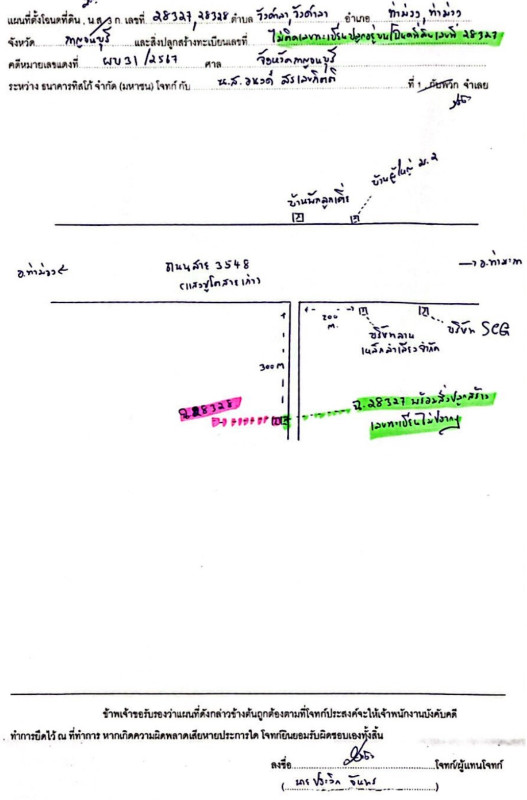 แผนที่ตั้งโฉนดที่ดิน, น.ส. 3 ก. เลขที่ 28327, 28328 ตำบล วังศาลา, วังศาลา อำเภอ ท่าม่วง, ท่าม่วง
จังหวัด กาญจนบุรี และสิ่งปลูกสร้างทะเบียนเลขที่ ไม่ติดเลขทะเบียนปลูกอยู่บนโฉนดที่ดินเลขที่ 28327
คดีหมายเลขแดงที่ ผบ 31 /2567 ศาล จังหวัดกาญจนบุรี
ระหว่าง ธนาคารทิสโก้ จำกัด (มหาชน) โจทก์ กับ น.ส. ที่ 1 กับพวก จำเลย
บ้านผู้ใหญ่ ม.2
บ้านพัก
อ.ท่าม่วง
ถนนสาย 3548
(แสงชูโตสายเก่า)
อ.ท่ามะกา
200 m.
บริษัท
จำกัด
บริษัท SCG
300 m
ฉ.28328
ฉ.28327 พร้อมสิ่งปลูกสร้าง
เลขทะเบียนไม่ปรากฏ
ข้าพเจ้าขอรับรองว่าแผนที่ดังกล่าวข้างต้นถูกต้องตามที่โจทก์ประสงค์จะให้เจ้าพนักงานบังคับคดี
ทำการยึดไว้ ณ ที่ทำการ หากเกิดความผิดพลาดเสียหายประการใด โจทก์ยินยอมรับผิดชอบเองทั้งสิ้น
ลงชื่อ โจทก์/ผู้แทนโจทก์
( นาย )